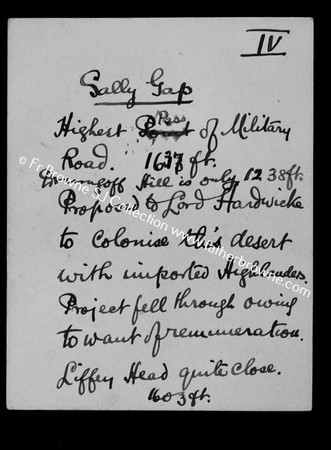 IV
Sally Gap
Highest Pass of Military
Road. 1637 ft.
Hill is only 1238ft.
Proposed to Lord Hardwicke
to colonise this desert
with imported Highlanders
Project fell through owing
to want of remuneration.
Liffey Head quite close.
1603ft.
© Fr Browne SJ Collection www.fatherbrowne.com